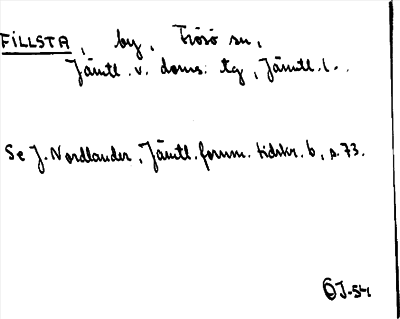 FILLSTA, by, Frösö sn,
Jämtl. v. doms. tg, Jämtl. l.
Se J. Nordlander, Jämtl. fornm. tidskr. 6, s. 73.
ÖJ-54